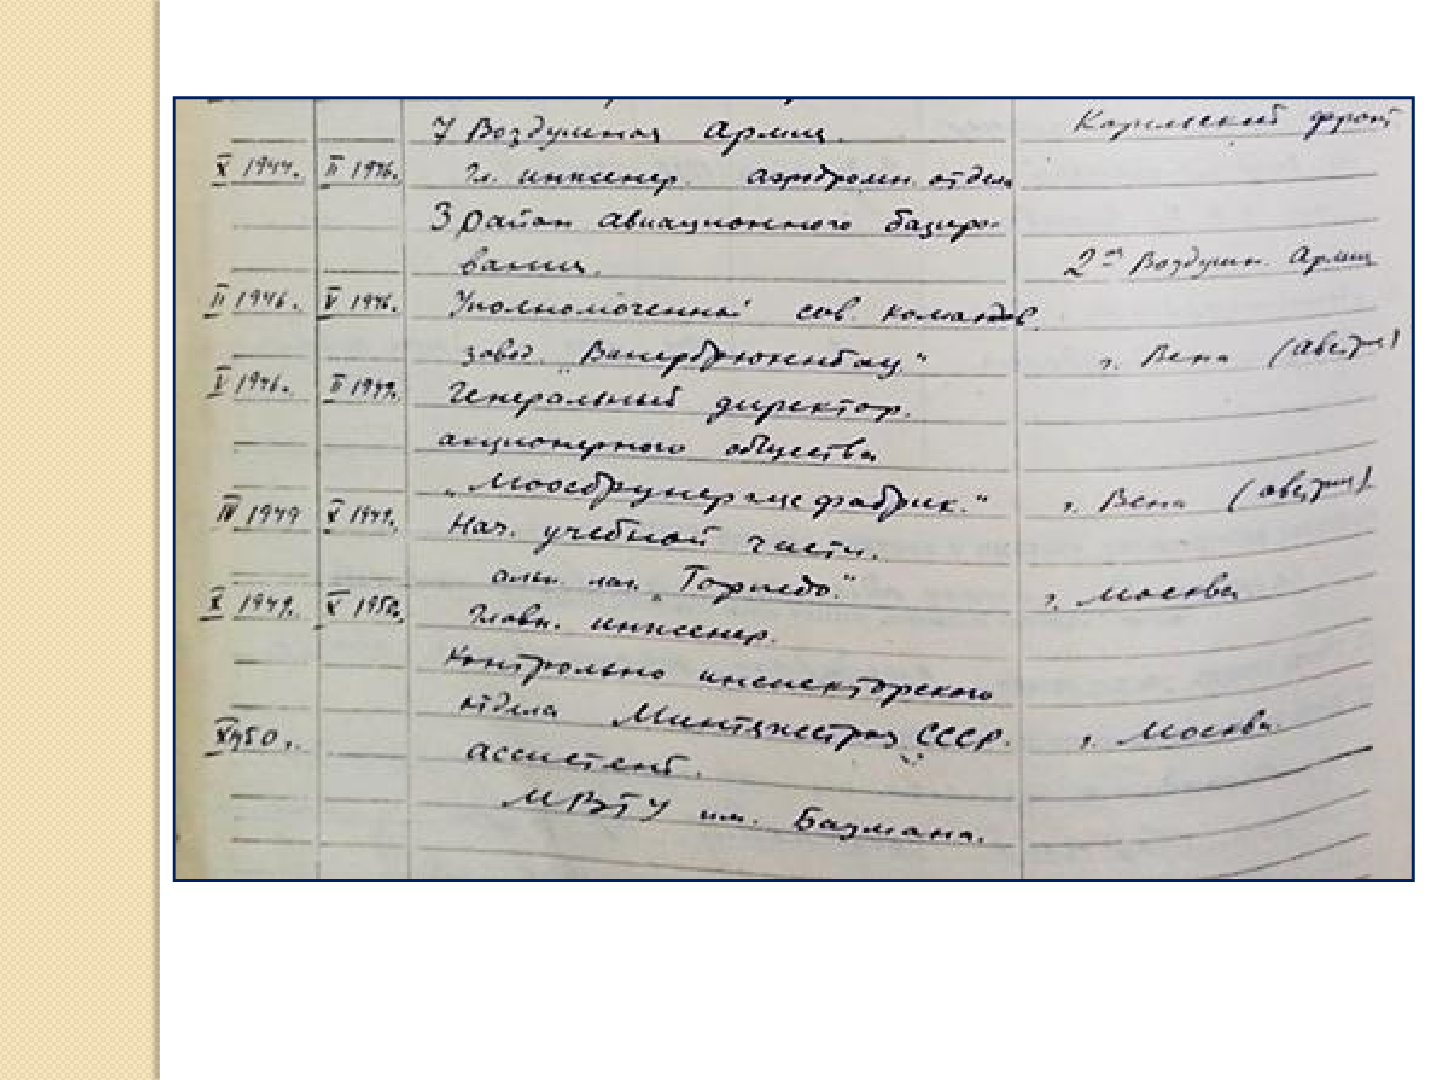 7 Воздушная Армия. Карельский фронт
X 1944. II 1946. Гл. инженер. аэродромн. отдела
3 район авиационного базиро-
вания. 2-ая Воздушн. Армия
II 1946. V 1946. Уполномоченный сов. командов.
завод. „Вагнербрюкенбау“ г. Вена (Австрия)
V 1946. II 1949. Генеральный директор.
акционерного общества
„Моосбруннергласфабрик.“ г. Вена (Австрия)
IV 1949 X 1949. Нач. учебной части.
„Торпедо.“ г. Москва
X 1949. X 1950. Главн. инженер.
Контрольно инспекторского
отдела Минтяжстроя СССР. г. Москва.
X 1950 г. ассистент.
МВТУ им. Баумана.